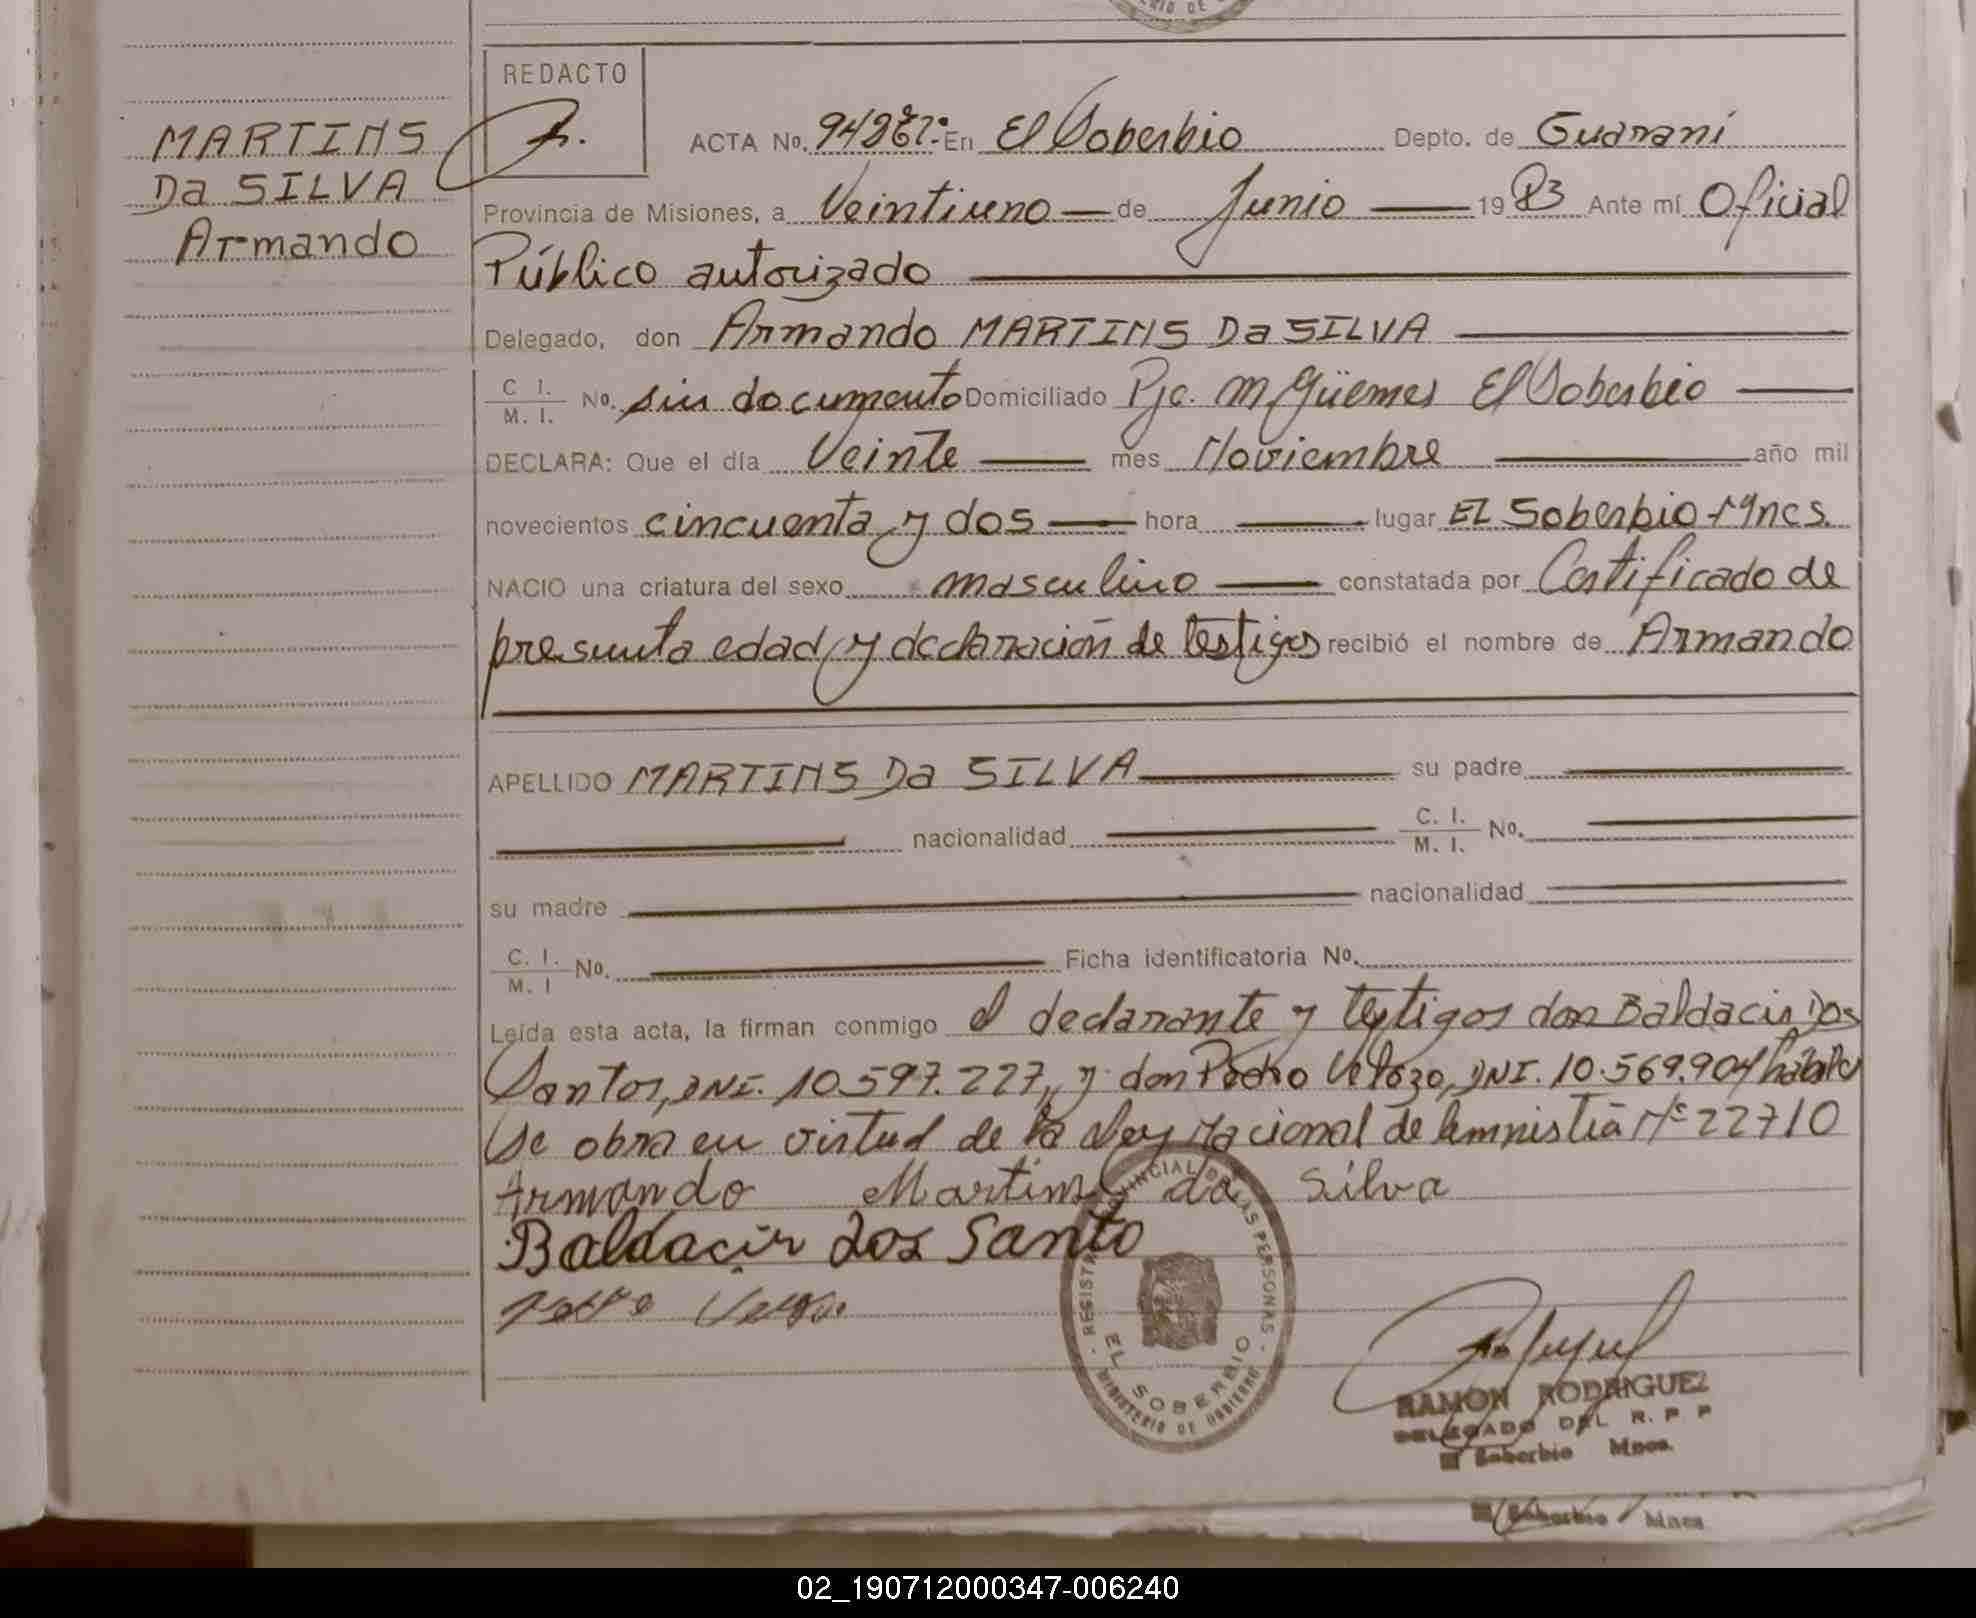 RIO DE
REDACTO
MARTINS
Da SILVA
Armando
ACTA No. En El Soberbio Depto. de Guaraní
Provincia de Misiones, a Veintiuno de Junio 1983 Ante mí Oficial
Público autorizado
Delegado, don Armando MARTINS Da SILVA
C I. M. I. No. sin documento Domiciliado Pje. M. Güemes El Soberbio
DECLARA: Que el día Veinte mes Noviembre año mil
novecientos cincuenta y dos hora lugar EL Soberbio Mnes.
NACIO una criatura del sexo masculino constatada por Certificado de
presunta edad, y declaración de testigos recibió el nombre de Armando
APELLIDO MARTINS Da SILVA su padre
nacionalidad C. I. M. I. No.
su madre nacionalidad
C. I. M. I No. Ficha identificatoria No.
Leída esta acta, la firman conmigo el declarante y testigos don Baldacir Dos
Santos, DNI. 10.597.227, y don Pedro Velozo, DNI. 10.569.904
Se obra en virtud de la Ley Nacional de Amnistía Nº 22710
Armando Martins da Silva
Baldacir dos Santo
REGISTRO PROVINCIAL DE LAS PERSONAS
EL SOBERBIO
MINISTERIO DE GOBIERNO
RAMON RODRIGUEZ
DELEGADO DEL R. P. P
El Soberbio Mnes.
Soberbio Mnes
02_190712000347-006240